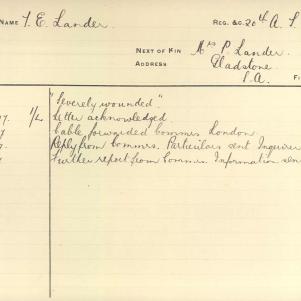 NAME F. E. Lander. REG. &C. 20th A.
NEXT OF KIN Mrs P. Lander.
ADDRESS Gladstone
S.A.
"Severely wounded".
1/2 Letter acknowledged.
Cable forwarded Commrs London.
Reply from Commrs. Particulars sent Inquirer
Further report from Commrs. Information sen